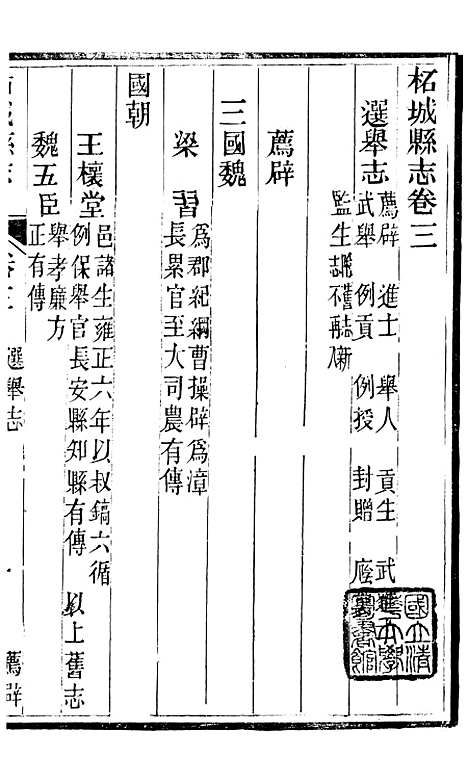 柘城縣志卷三
選舉志
薦辟 進士 舉人 貢生 武
武舉 例貢 例授 封贈 廕
監生
薦辟
三國魏
梁習
為郡紀綱曹操辟為漳
長累官至大司農有傳
國朝
王櫰堂
邑諸生雍正六年以叔鎬六循
例保舉官長安縣知縣有傳
以上舊志
魏五臣
舉孝廉方
正有傳
柘城縣志
卷三
選舉志
一
薦辟
國立清
華大學
圖書館